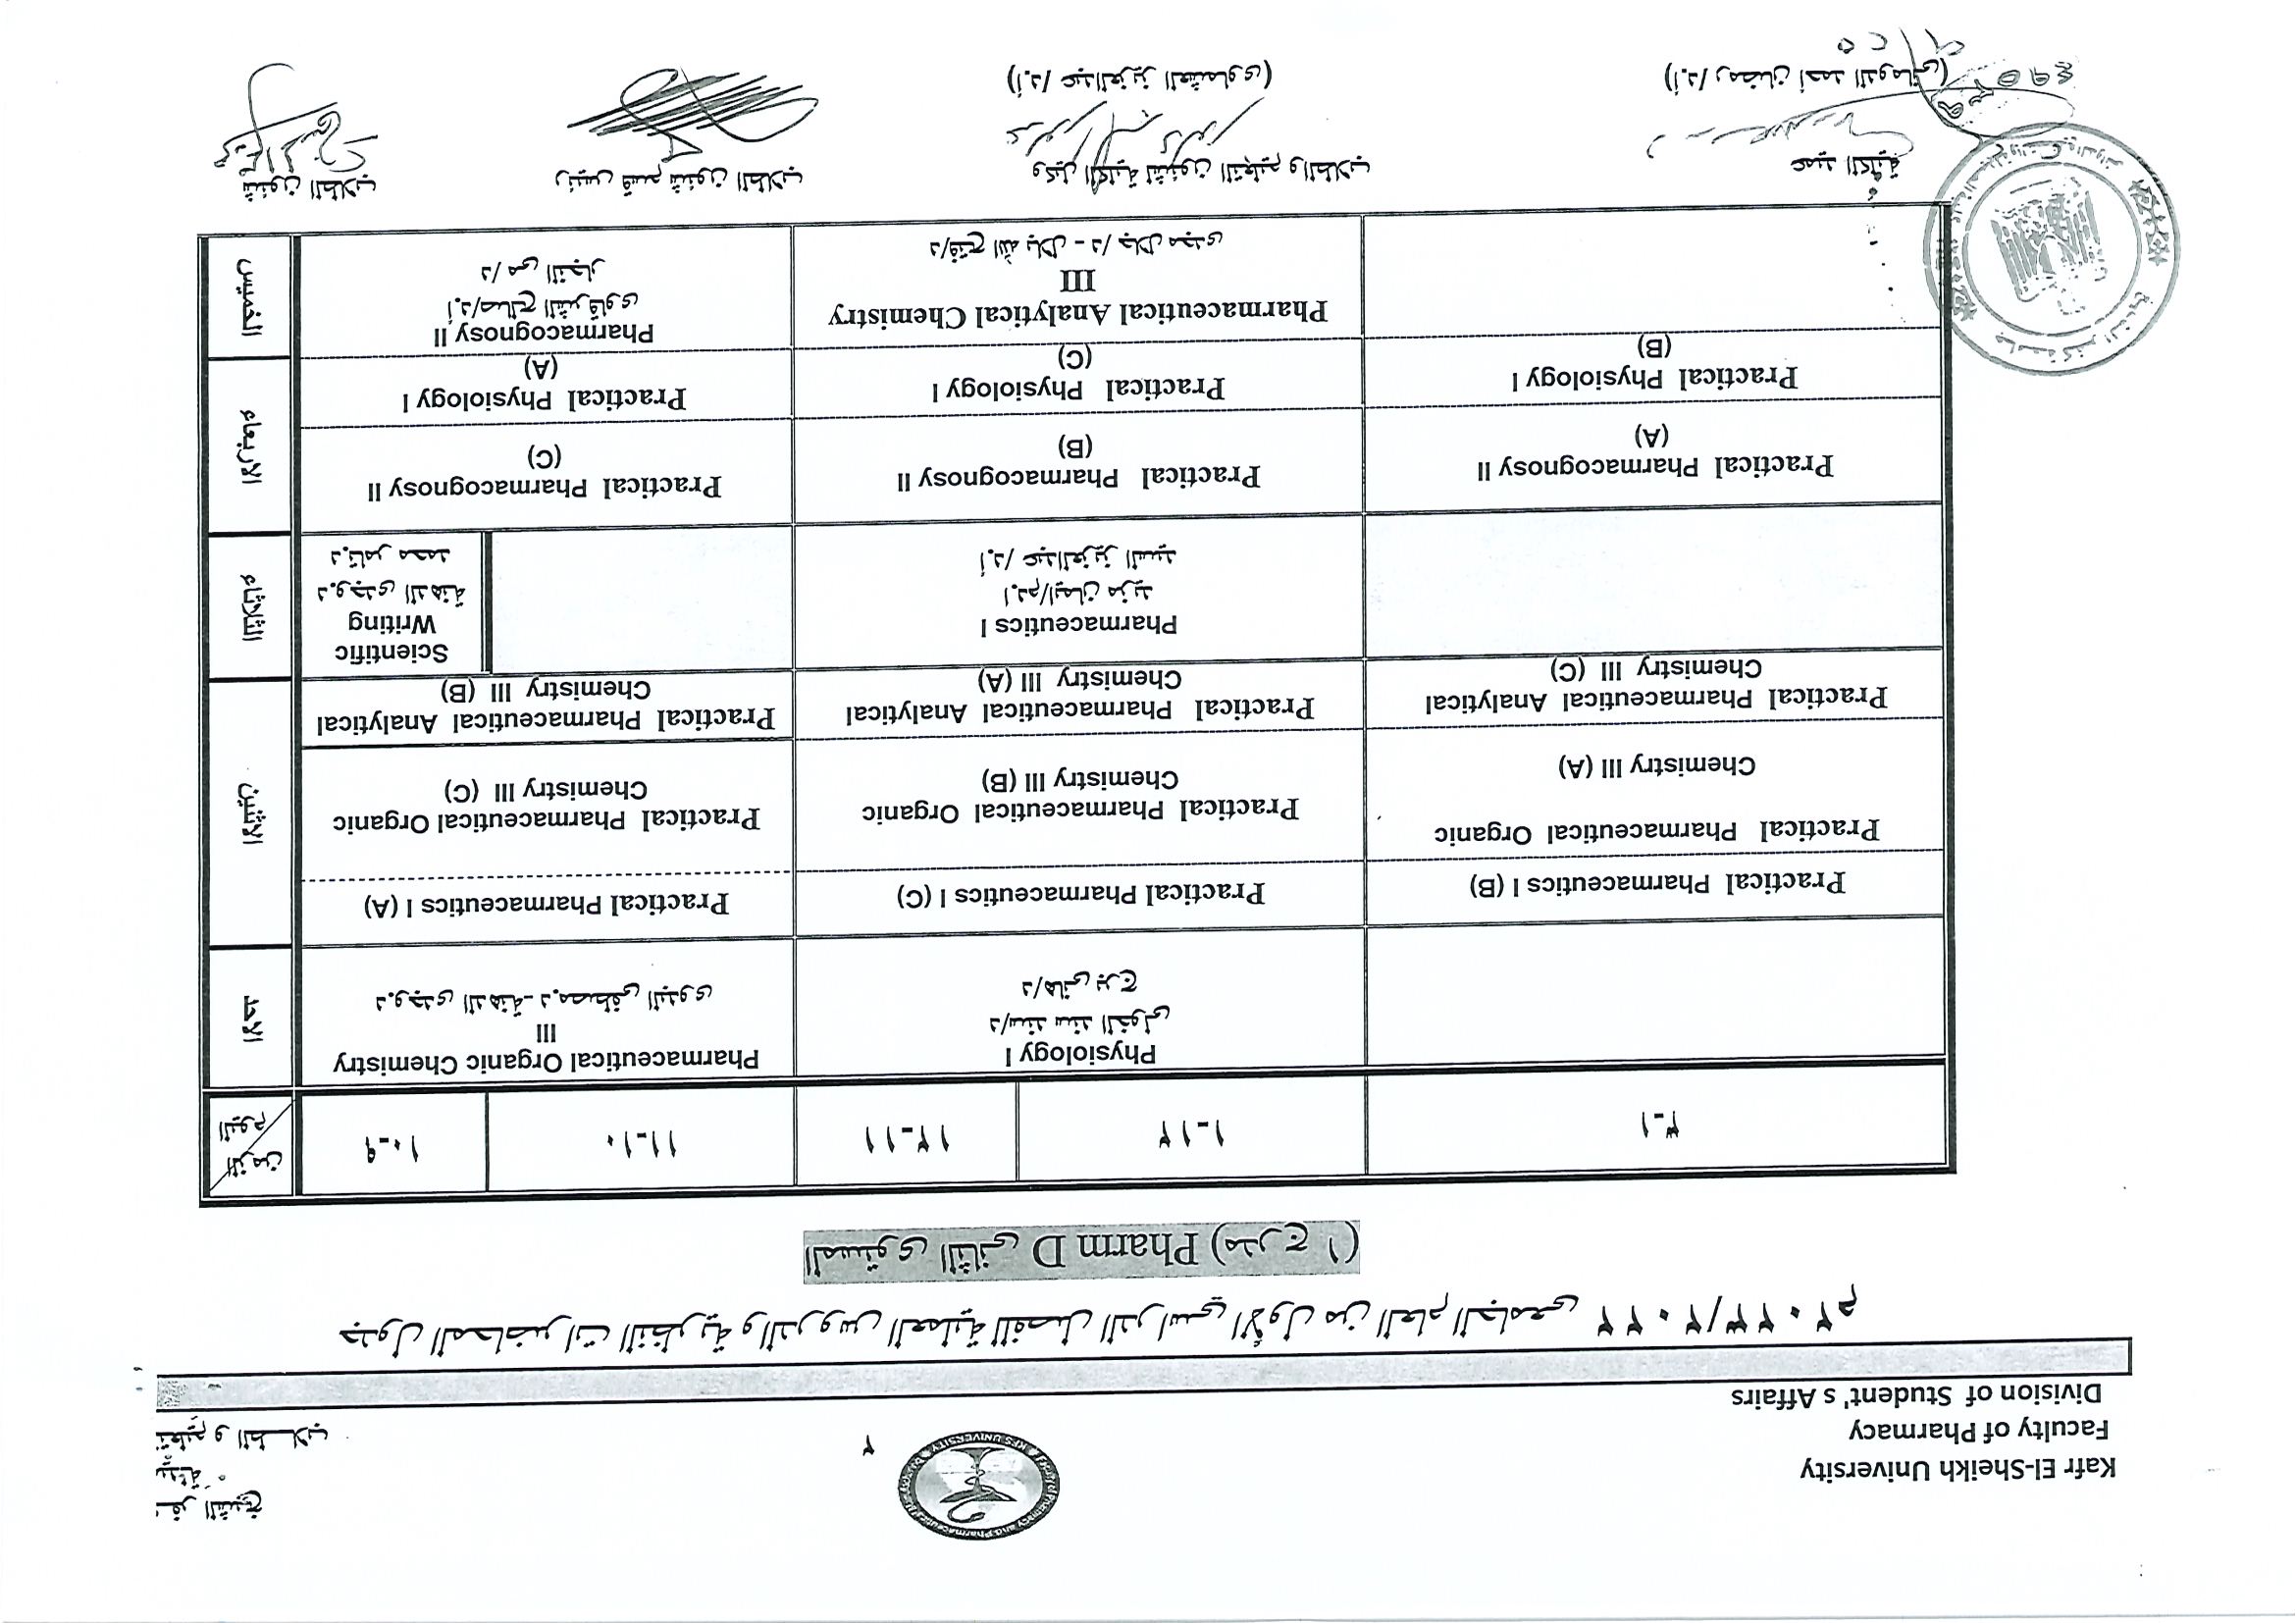 Kafr El-Sheikh University
Faculty of Pharmacy
Division of Student's Affairs
ـفر الشيخ
تعليم و الطلاب
٢
جدول المحاضرات النظرية والدروس العملية للفصل الدراسي الأول من العام الجامعى ٢٠٢٢/٢٠٢٣م
المستوى الثانى Pharm D (مدرج ١)
الزمن
اليوم
٩-١٠
١٠-١١
١١-١٢
١٢-١
١-٣
الاحد
Pharmaceutical Organic Chemistry
III
د.وجدى الدهنة - د.مصطفى البدوى
Physiology I
د/سند سند الخولى
د/هانى برج
الاثنين
Practical Pharmaceutics I (A)
Practical Pharmaceutics I (C)
Practical Pharmaceutics I (B)
Practical Pharmaceutical Organic
Chemistry III (C)
Practical Pharmaceutical Organic
Chemistry III (B)
Practical Pharmaceutical Organic
Chemistry III (A)
Practical Pharmaceutical Analytical
Chemistry III (B)
Practical Pharmaceutical Analytical
Chemistry III (A)
Practical Pharmaceutical Analytical
Chemistry III (C)
الثلاثاء
Scientific
Writing
د.وجدى الدهنة
د.تامر محمد
Pharmaceutics I
ا.دم/ايمان مزيد
أ.د/ عبدالعزيز السيد
الاربعاء
Practical Pharmacognosy II
(C)
Practical Pharmacognosy II
(B)
Practical Pharmacognosy II
(A)
Practical Physiology I
(A)
Practical Physiology I
(C)
Practical Physiology I
(B)
الخميس
Pharmacognosy II
أ.د/صالح الشرقاوى
د/ مى النجار
Pharmaceutical Analytical Chemistry
III
د/فتح الله بلال - د/ جلال مجدى
شئون الطلاب
رئيس قسم شئون الطلاب
وكيل الكلية لشئون التعليم والطلاب
(أ.د/ عبدالعزيز العشماوى)
عميد الكلية
(أ.د/ رمضان أحمد الدوماني)